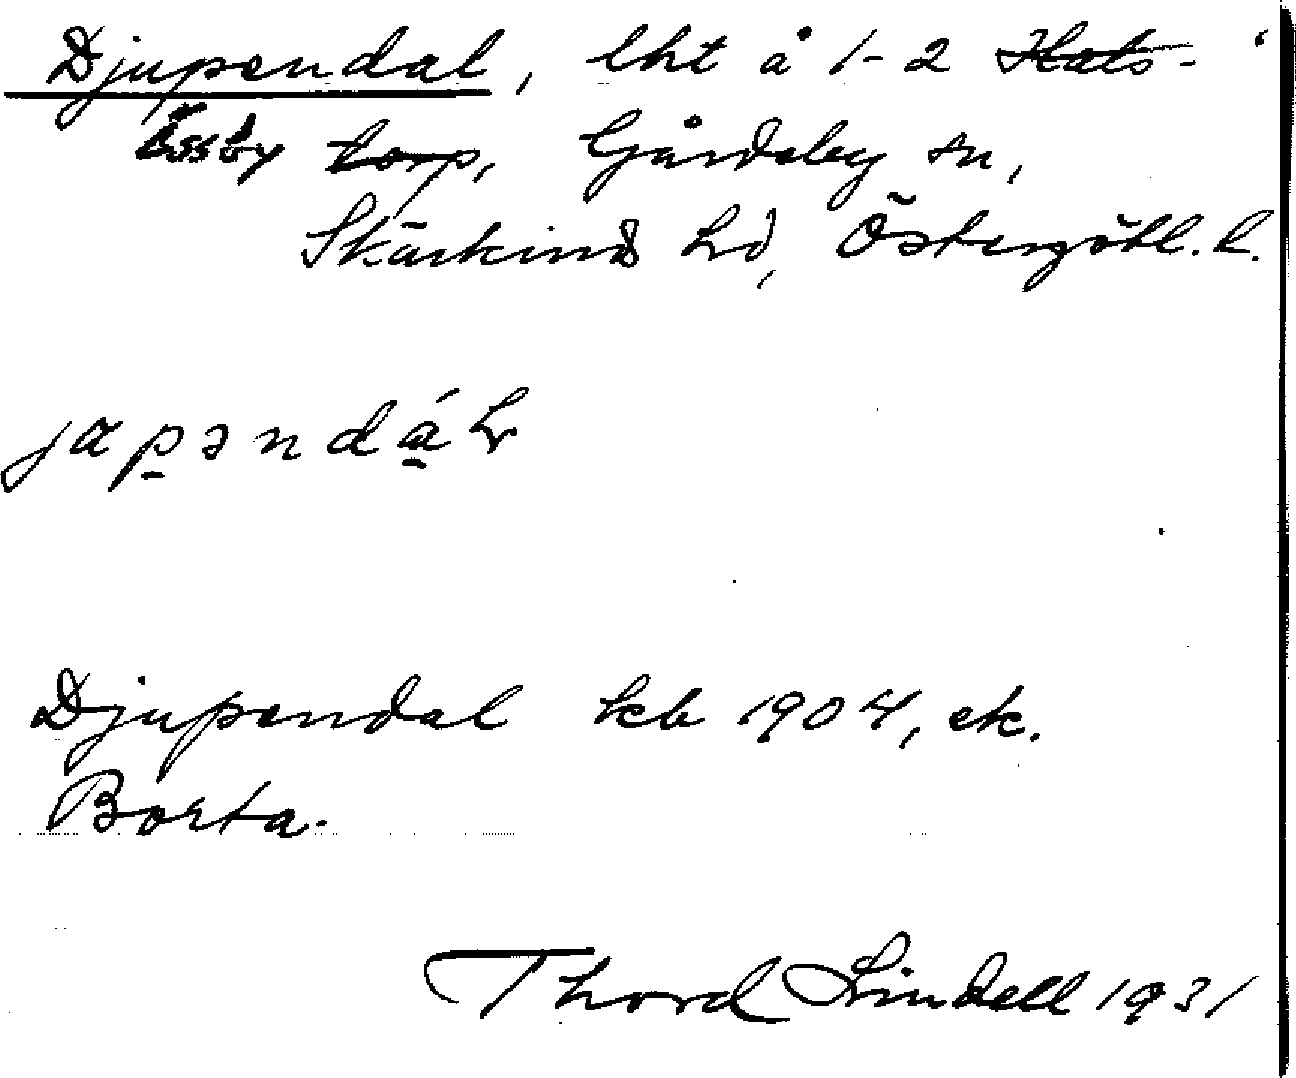 Djupendal, lht å 1-2 Hats-
Össby torp, Gårdeby sn,
Skärkind hd, Östergötl. l.
japəndáL
Djupendal kb 1904, ek.
Borta.
Thord Lindell 1931